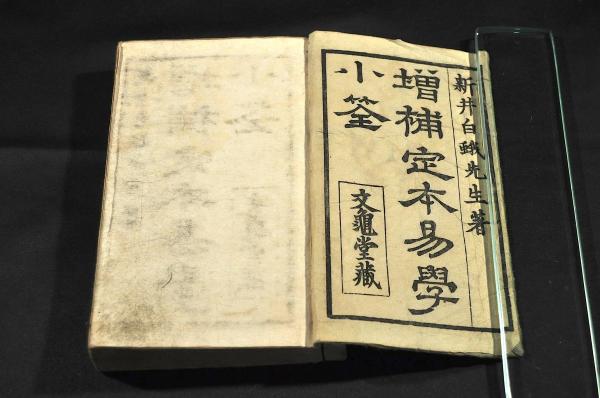 新井白蛾先生著
増補定本易學
小筌
文龜堂藏